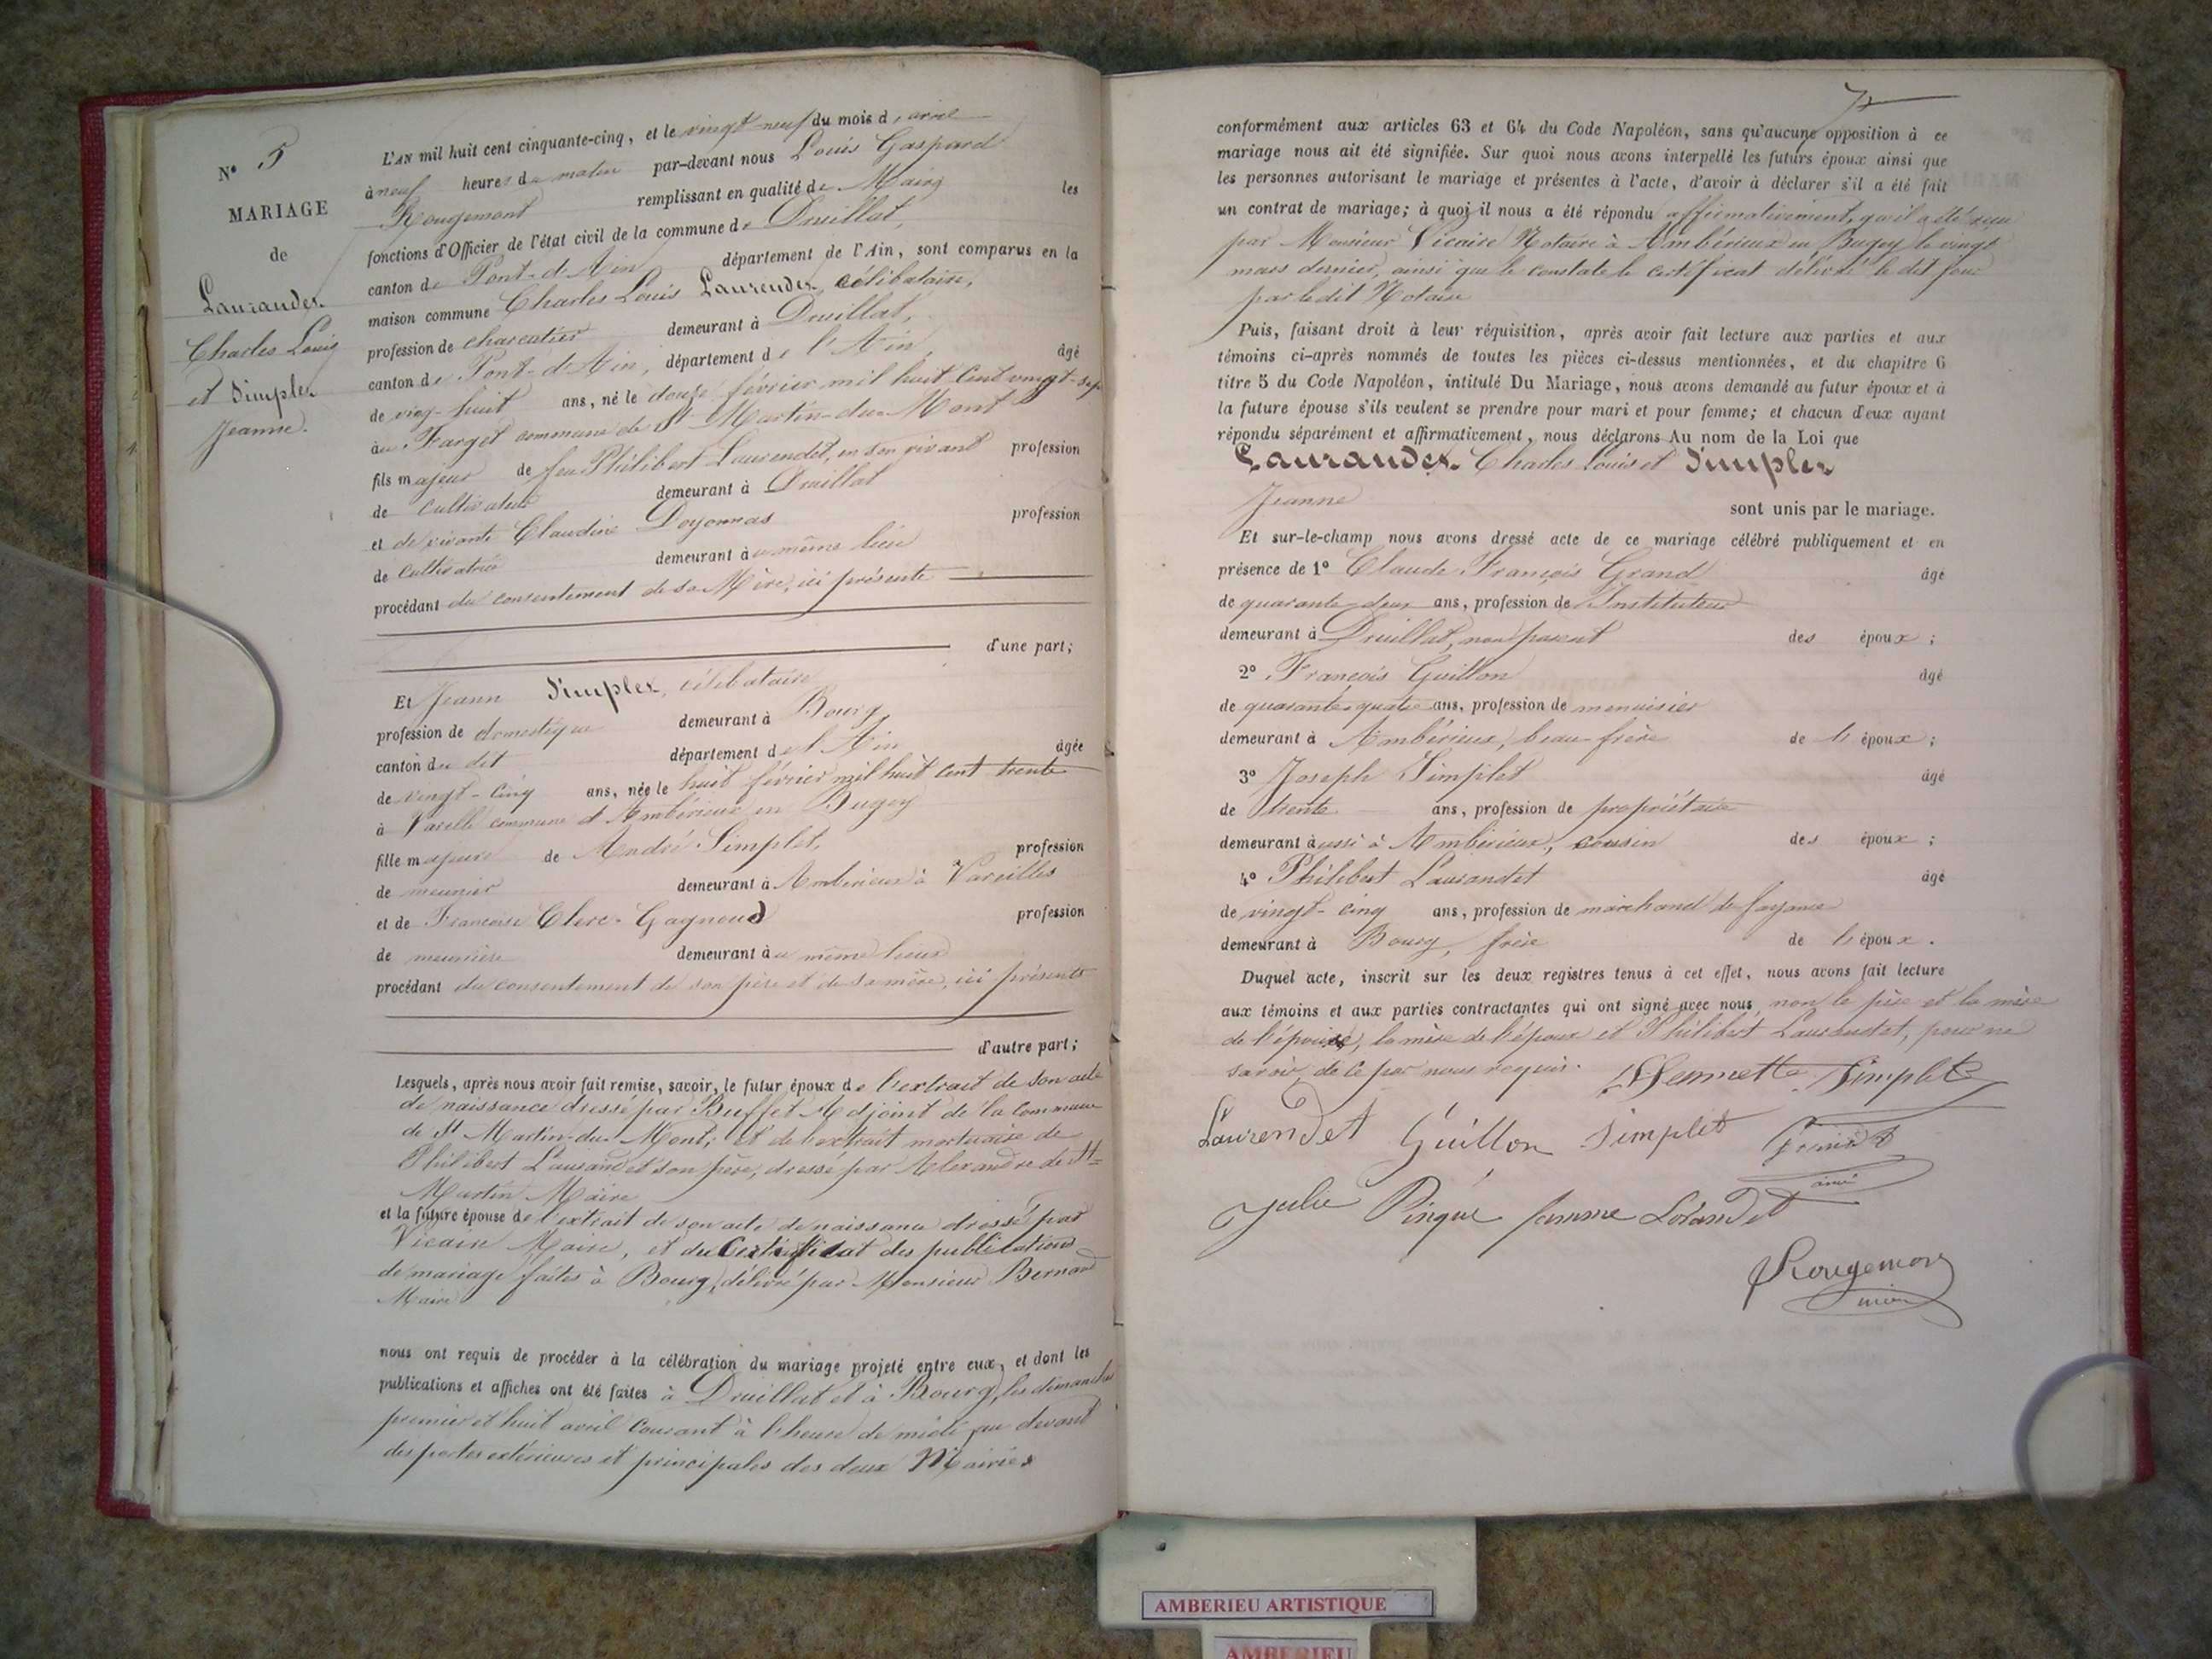 N° 5
MARIAGE
de
Laurandet
Charles Louis
et Simplet
Jeanne.
L'AN mil huit cent cinquante-cinq, et le vingt-neuf du mois d'avril
à neuf heures du matin par-devant nous Louis Gaspard
Rougemont remplissant en qualité de Maire les
fonctions d'Officier de l'état civil de la commune de Druillat,
canton de Pont-d'Ain département de l'Ain, sont comparus en la
maison commune Charles Louis Laurendet, célibataire,
profession de charcutier demeurant à Druillat,
canton de Pont-d'Ain, département de l'Ain, âgé
de ving-huit ans, né le douze février mil huit cent vingt-sept
au Farget commune de St Martin-du-Mont
fils majeur de feu Philibert Laurendet, en son vivant profession
de cultivateur demeurant à Druillat
et de vivante Claudine Doyonnas profession
de cultivatrice demeurant au même lieu
procédant du consentement de sa Mère, ici présente
d'une part;
Et Jeann Simplet, célibataire
profession de domestique demeurant à Bourg,
canton du dit département de l'Ain âgée
de vingt-cinq ans, née le huit février mil huit cent trente
à Vareille commune d'Ambérieux en Bugey
fille majeure de André Simplet, profession
de meunier demeurant à Ambérieux à Vareilles
et de Francoise Clerc-Gagnoud profession
de meunière demeurant au même lieu
procédant du consentement de son père et de sa mère, ici présents
d'autre part;
Lesquels, après nous avoir fait remise, savoir, le futur époux de l'extrait de son acte
de naissance dressé par Buffet Adjoint de la commune
de St Martin-du-Mont; et de l'extrait mortuaire de
Philibert Laurandet son père, dressé par Alexandre de St=
Martin Maire
et la future épouse de l'extrait de son acte de naissance dressé par
Vicaire Maire, et du Certificat des publications
de mariage faites à Bourg, délivré par Monsieur Bernard
Maire
nous ont requis de procéder à la célébration du mariage projeté entre eux, et dont les
publications et affiches ont été faites à Druillat et à Bourg, les dimanches
premier et huit avril courant à l'heure de midi au devant
des portes extérieures et principales des deux Mairies
7
conformément aux articles 63 et 64 du Code Napoléon, sans qu'aucune opposition à ce
mariage nous ait été signifiée. Sur quoi nous avons interpellé les futurs époux ainsi que
les personnes autorisant le mariage et présentes à l'acte, d'avoir à déclarer s'il a été fait
un contrat de mariage; à quoi il nous a été répondu affirmativement, qu'il a été reçu
par Monsieur Vicaire Notaire à Ambérieux en Bugey le vingt
mars dernier, ainsi que le constate le certificat délivré le dit jour
par le dit Notaire
Puis, faisant droit à leur réquisition, après avoir fait lecture aux parties et aux
témoins ci-après nommés de toutes les pièces ci-dessus mentionnées, et du chapitre 6
titre 5 du Code Napoléon, intitulé Du Mariage, nous avons demandé au futur époux et à
la future épouse s'ils veulent se prendre pour mari et pour femme; et chacun d'eux ayant
répondu séparément et affirmativement, nous déclarons Au nom de la Loi que
Laurandet Charles Louis et Simplet
Jeanne
sont unis par le mariage.
Et sur-le-champ nous avons dressé acte de ce mariage célébré publiquement et en
présence de 1° Claude François Grand âgé
de quarante-deux ans, profession de Instituteur
demeurant à Druillat, non parent des époux ;
2° François Guillon âgé
de quarante-quatre ans, profession de menuisier
demeurant à Ambérieux, beau-frère de l'époux ;
3° Joseph Simplet âgé
de trente ans, profession de propriétaire
demeurant aussi à Ambérieux, cousin des époux ;
4° Philibert Laurandet âgé
de vingt-cinq ans, profession de marchand de fayance
demeurant à Bourg, frère de l'époux.
Duquel acte, inscrit sur les deux registres tenus à cet effet, nous avons fait lecture
aux témoins et aux parties contractantes qui ont signé avec nous, non le père et la mère
de l'épouse, la mère de l'époux et Philibert Laurandet, pour ne
savoir, de ce par nous requis. Jennette Simplet
Laurendet Guillon Simplet
Julie Pingue famme Lorandet
Rougemont
maire
AMBERIEU ARTISTIQUE
AMBERIEU